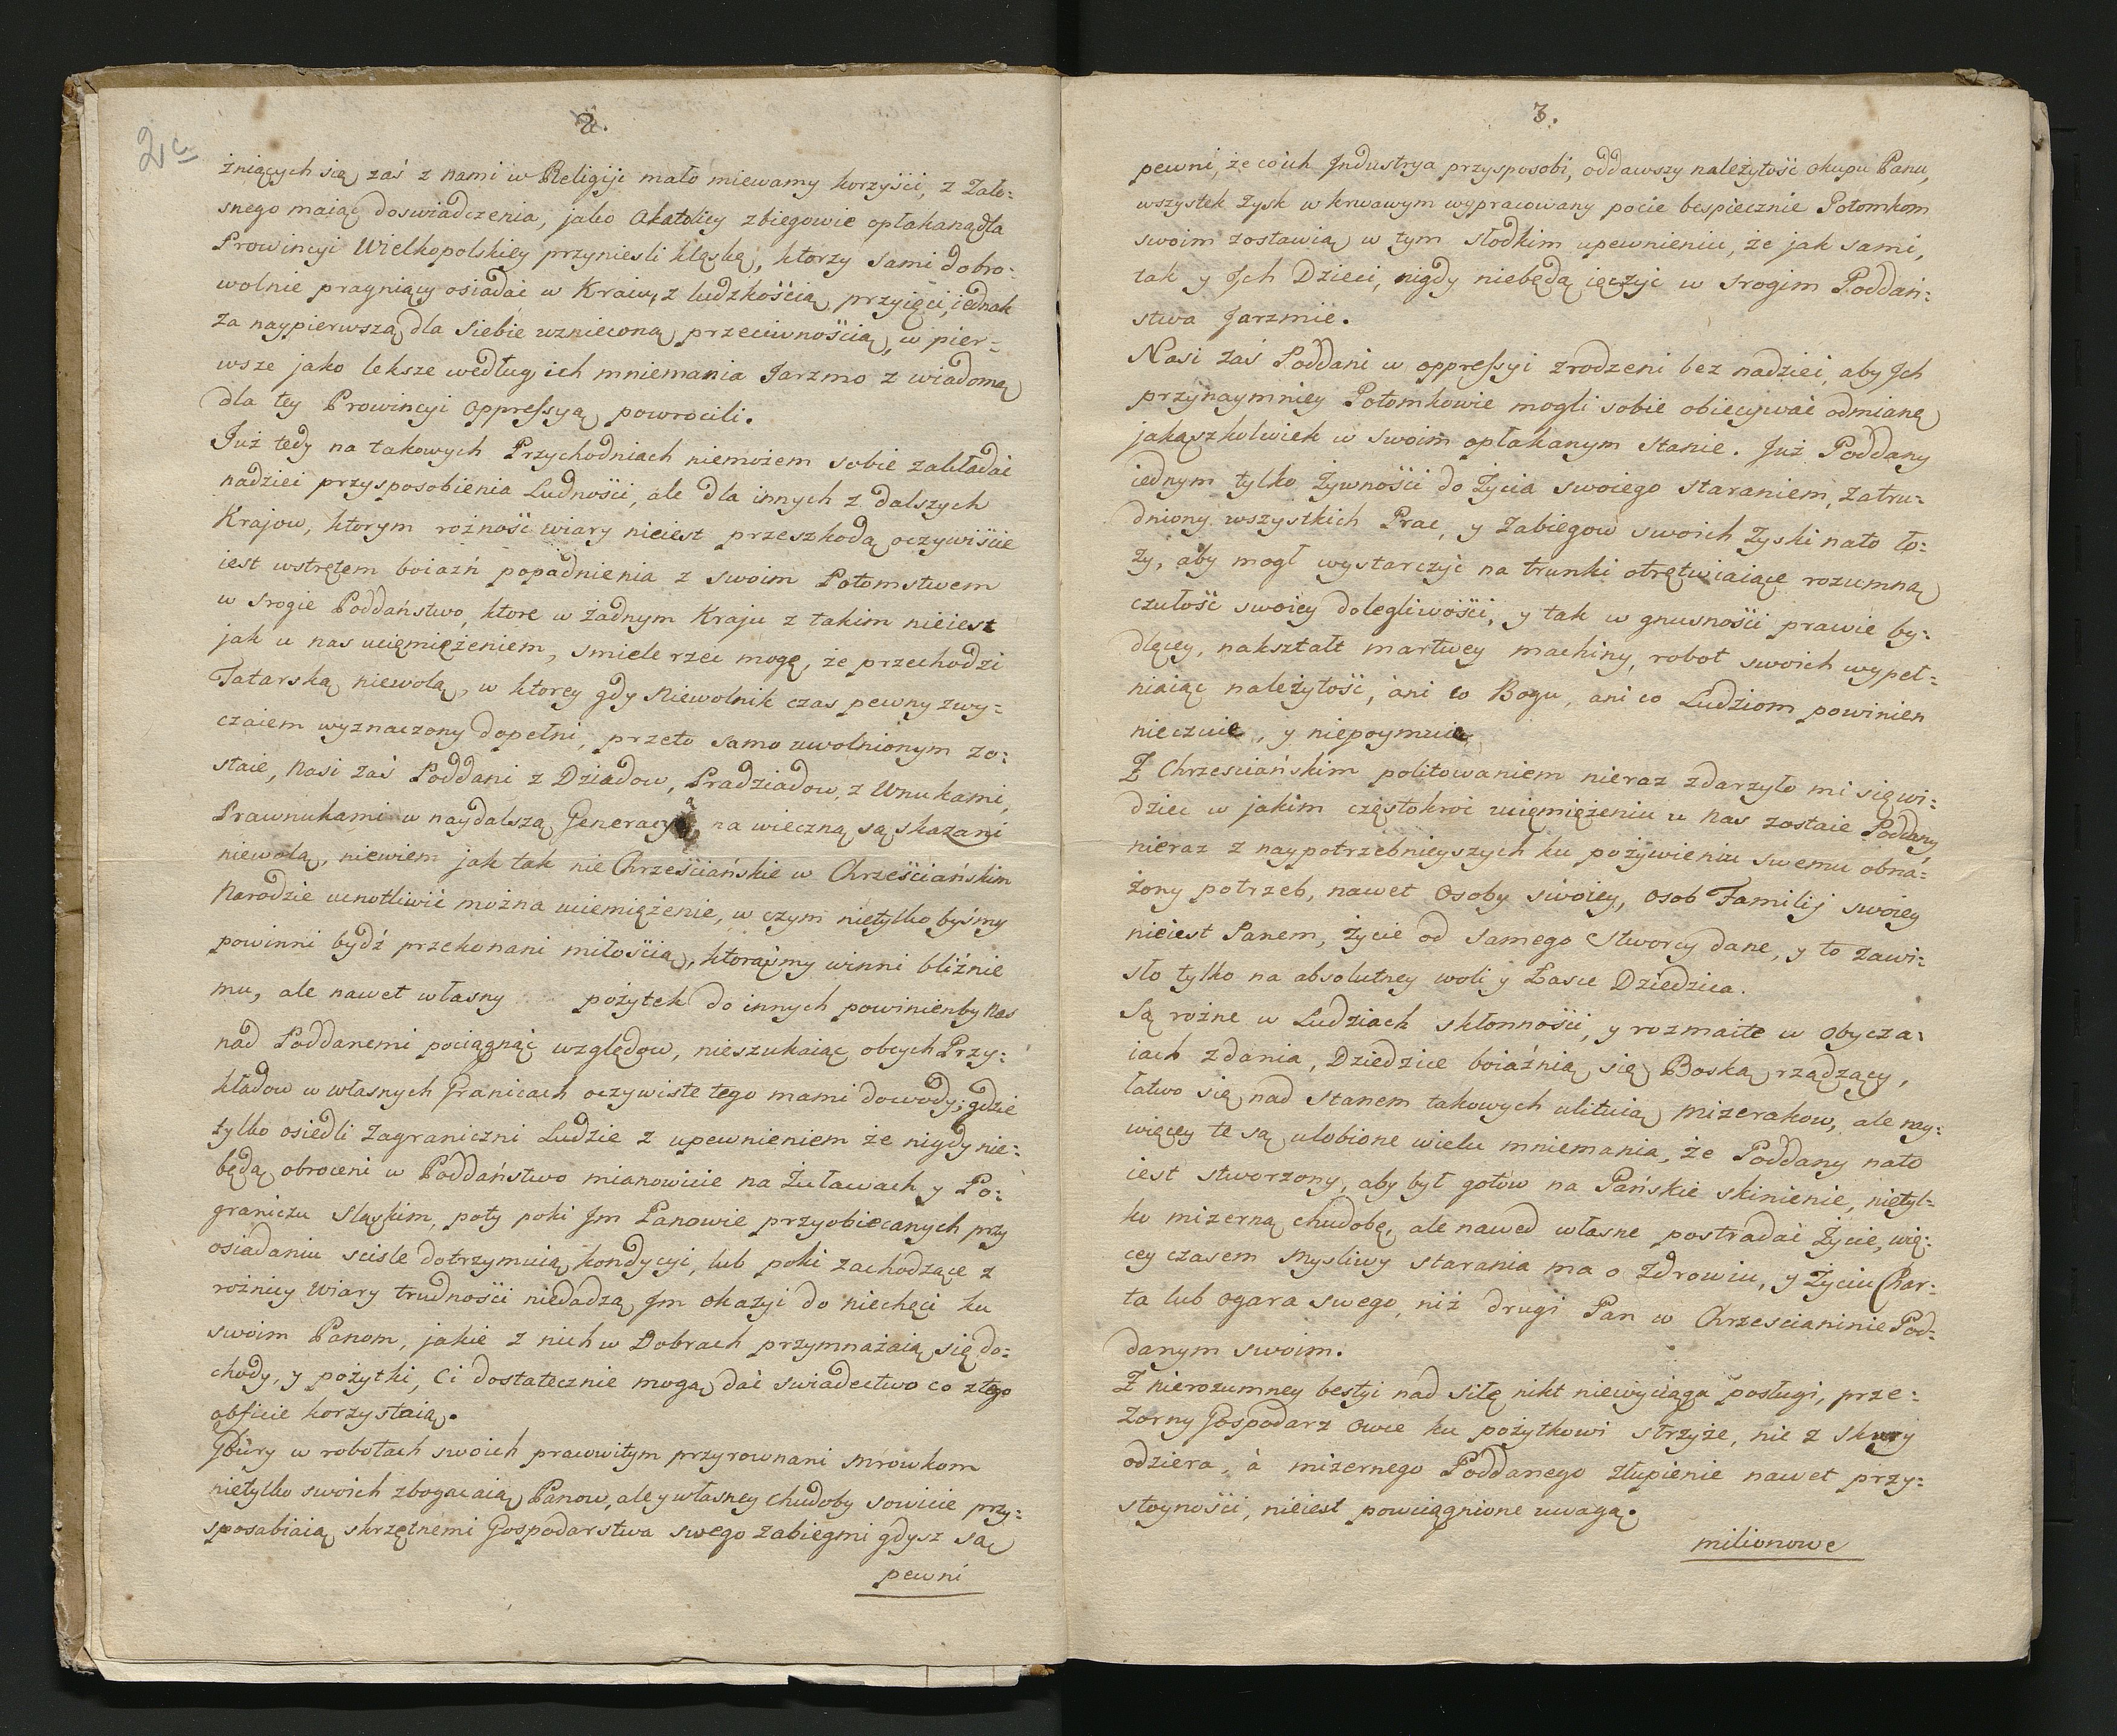 2.
2a
żniących się zaś z nami w Religiji mało miewamy korzyści, z Zało-
snego maiąc doswiadczenia, jako Akatolicy zbiegowie opłakaną dla
Prowincyi Wielkopolskiey przyniesli klęskę, ktorzy sami dobro-
wolnie pragniący osiadać w Kraiu, z ludzkością przyięci, iednak
za naypierwszą dla siebie wznieconą przeciwnością, w pier-
wsze jako leksze według ich mniemania Jarzmo z wiadomą
dla tey Prowincyi oppressyą powrocili.
Już tedy na takowych Przychodniach niemożem sobie zakładać
nadziei przysposobienia Ludności, ale dla innych z dalszych
Krajow, ktorym rożność wiary nieiest przeszkodą oczywiście
iest wstrętem boiaźń popadnienia z swoim Potomstwem
w srogie Poddaństwo, ktore w żadnym Kraju z takim nieiest
jak u nas uciemiężeniem, smiele rzec mogę, że przechodzi
Tatarską niewolą, w ktorey gdy Niewolnik czas pewny zwy-
czaiem wyznaczony dopełni, przeto samo uwolnionym zo-
staie, Nasi zaś Poddani z Dziadow, Pradziadow, z Wnukami,
Prawnukami w naydalszą Generacyą na wieczną są skazani
niewolą, niewiem jak tak nie Chrześciańskie w Chrześciańskim
Narodzie ucnotliwić można uciemiężenie, w czym nietylko byśmy
powinni bydź przekonani miłością, ktorąśmy winni bliźnie
mu, ale nawet własny pożytek do innych powinienby nas
nad Poddanemi pociągnąć względow, nieszukaiąc obcych Przy-
kładow w własnych Granicach oczywiste tego mamy dowody; gdzie
tylko osiedli Zagraniczni Ludzie z upewnieniem że nigdy nie-
będą obroceni w Poddaństwo mianowicie na Żuławach y Po-
graniczu Sląskim, poty poki Jm Panowie przyobiecanych przy
osiadaniu scisle dotrzymuią kondycyi, lub poki zachodzące z
rożnicy Wiary trudności niedadzą Jm okazyi do niechęci ku
swoim Panom, jakie z nich w Dobrach przymnażaią się do-
chody, y pożytki, Ci dostatecznie mogą dać swiadectwo co z tego
obficie korzystaią.
Gbury w robotach swoich pracowitym przyrownani mrowkom
nietylko swoich zbogacaią Panow, ale y własney chudoby sowicie przy-
sposabiaią skrzętnemi Gospodarstwa swego zabiegmi gdysz są
pewni
3.
pewni, że co ich Industrya przysposobi, oddawszy należytość okupu Panu,
wszystek Zysk w krwawym wypracowany pocie bespiecznie Potomkom
swoim zostawią w tym słodkim upewnieniu, że jak sami,
tak y Jch Dzieci, nigdy niebędą ięczyć w srogim Poddań-
stwa Jarzmie.
Nasi zaś Poddani w oppressyi zrodzeni bez nadziei, aby Jch
przynaymniey Potomkowie mogli sobie obiecywać odmianę
jakąszkolwiek w swoim opłakanym stanie. Już Poddany
iednym tylko Żywności do Życia swoiego staraniem zatru-
dniony wszystkich Prac, y Zabiegow swoich Zyski nato ło-
ży, aby mogł wystarczyć na trunki otrętwiaiące rozumną
czułość swoiey dolegliwości, y tak w gnusności prawie by-
dlęcey, nakształt martwey machiny, robot swoich wypeł-
niaiąc należytość, ani co Bogu, ani co Ludziom powinien
nieczuie, y niepoymuie,
Z Chrzesciańskim politowaniem nieraz zdarzyło mi się wi-
dziec w jakim częstokroć uciemiężeniu u nas zostaie Poddany
nieraz z naypotrzebnieyszych ku pożywieniu swemu obna-
żony potrzeb, nawet Osoby swoiey, Osob Familij swoiey
nieiest Panem, życie od samego Stworcy dane, y to zawi-
sło tylko na absolutney woli y Łasce Dziedzica.
Są rożne w Ludziach skłonności, y rozmaite w Obycza-
iach zdania, Dziedzice boiaźnią się Boską rządzący,
łatwo się nad stanem takowych ulituią mizerakow, ale nay-
więcey te są ulobione wielu mniemania, że Poddany nato
iest stworzony, aby był gotow na Pańskie skinienie, nietyl-
ko mizerną chudobę, ale nawed własne postradać Życie, wię-
cey czasem Mysliwy starania ma o Zdrowiu, y Życiu Char-
ta lub ogara swego, niż drugi Pan w Chrzescianinie Pod-
danym swoim.
Z nierozumney bestyi nad siłę nikt niewyciąga posługi, prze-
zorny Gospodarz owce ku pożytkowi strzyże, nie z skury
odziera, à mizernego Poddanego złupienie nawet przy-
stoyności, nieiest powciągnione uwagą.
milionowe